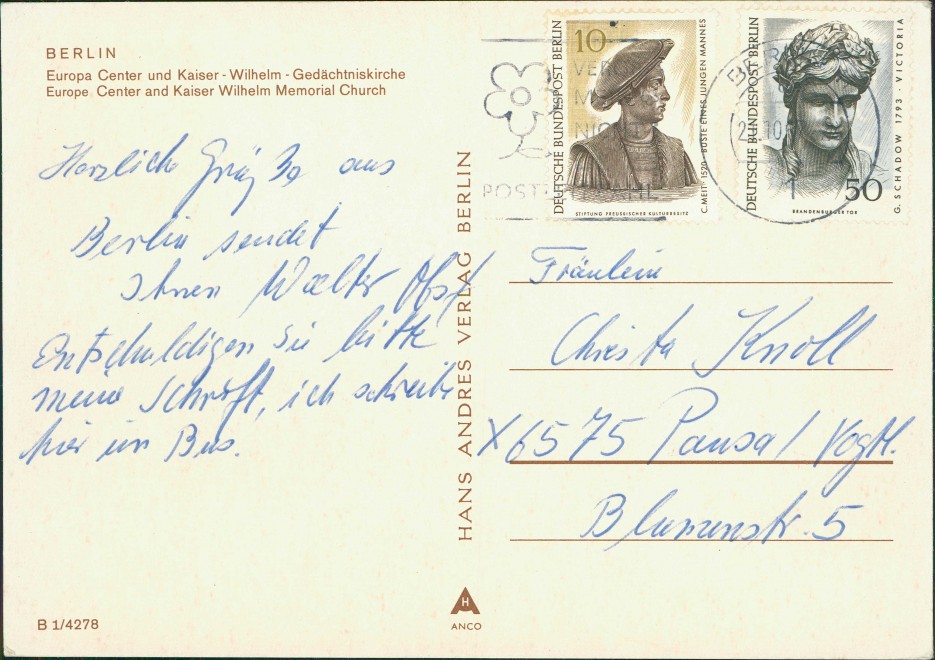 BERLIN
Europa Center und Kaiser-Wilhelm-Gedächtniskirche
Europe Center and Kaiser Wilhelm Memorial Church
Herzliche Grüße aus
Berlin sendet
Ihnen Walter
Entschuldigen Sie bitte
meine Schrift, ich schreibe
hier im Bus.
B 1/4278
HANS ANDRES VERLAG BERLIN
H
ANCO
POST
10
DEUTSCHE BUNDESPOST BERLIN
C. MEIT · 1520 · BÜSTE EINES JUNGEN MANNES
STIFTUNG PREUSSISCHER KULTURBESITZ
DEUTSCHE BUNDESPOST BERLIN
50
BRANDENBURGER TOR
G. SCHADOW 1793 · VICTORIA
Fräulein
Christa Knoll
X6575 Pausa/Vogtl.
Blumenstr. 5